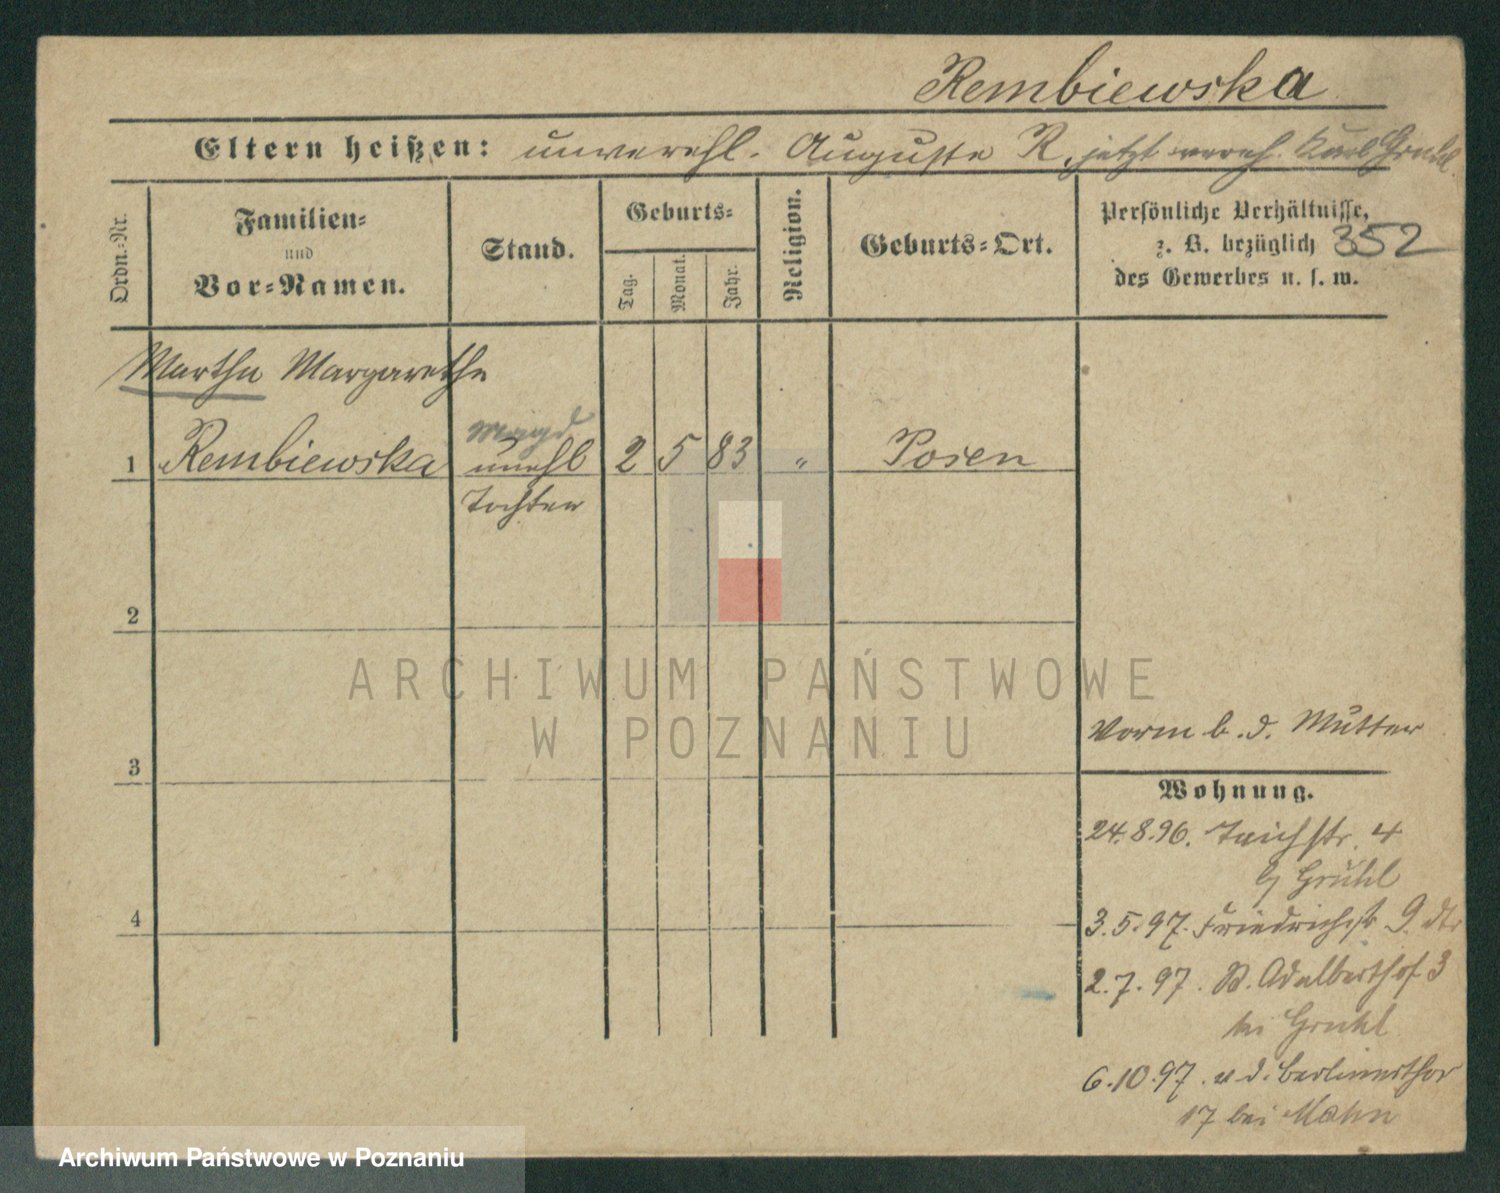 Rembiewska
Eltern heißen: unverehl. Auguste R. jetzt vereh. Karl Gruhl
Ordn.=Nr.
Familien=
und
Vor=Namen.
Stand.
Geburts=
Tag.
Monat.
Jahr.
Religion.
Geburts=Ort.
Persönliche Verhältnisse,
z. B. bezüglich 352
des Gewerbes u. s. w.
Martha Margarethe
Magd
1 Rembiewska unehl 2 5 83 " Posen
Tochter
2
3
4
Vorm b. d. Mutter
Wohnung.
24.8.96. Teichstr. 4
b/ Gruhl
3.5.97. Friedrichstr 9.
2.7.97. St. Adalberthof 3
bei Gruhl
6.10.97. v. d. Berlinerthor
17 bei Mahn
ARCHIWUM PAŃSTWOWE
W POZNANIU
Archiwum Państwowe w Poznaniu